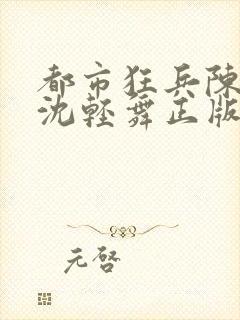 都市狂兵陳
沈輕舞正版
元啓